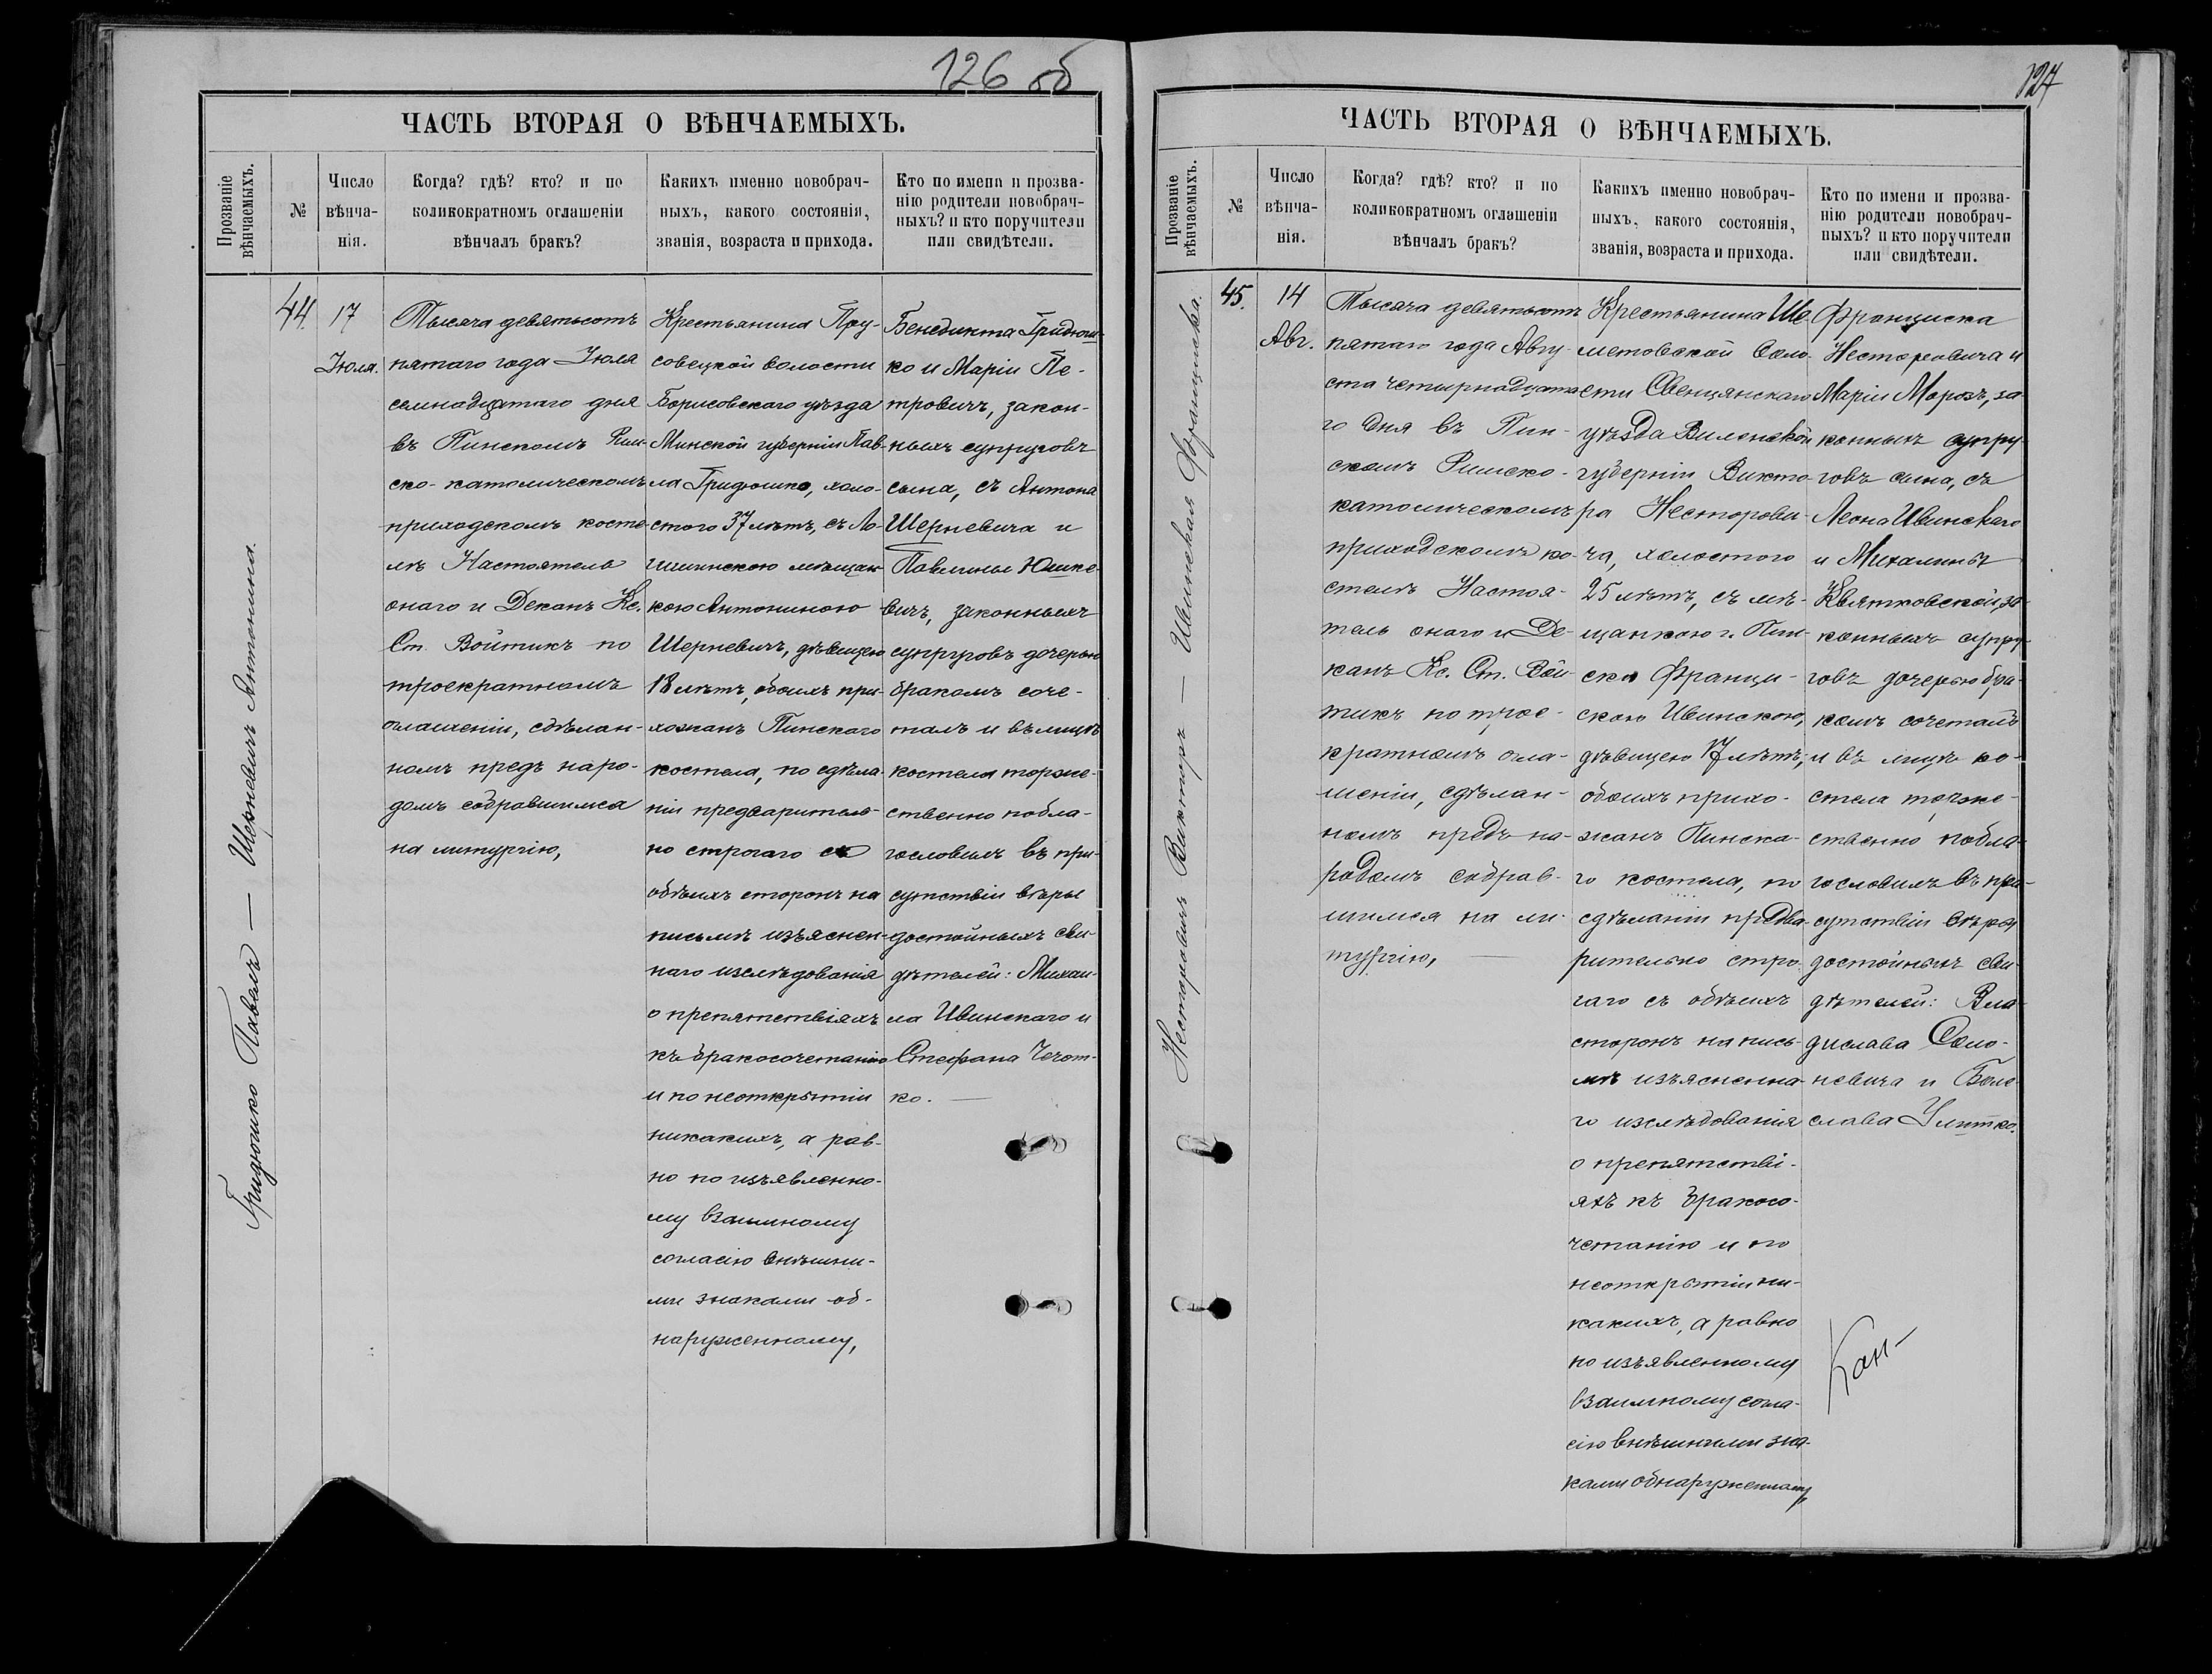 126 об
ЧАСТЬ ВТОРАЯ О ВѢНЧАЕМЫХЪ.
Прозваніе
вѣнчаемыхъ.
№
Число
вѣнча-
нія.
Когда? гдѣ? кто? и по
коликократномъ оглашеніи
вѣнчалъ бракъ?
Какихъ именно новобрач-
ныхъ, какого состоянія,
званія, возраста и прихода.
Кто по имени и прозва-
нію родители новобрач-
ныхъ? и кто поручители
или свидѣтели.
Гридюшко Павелъ — Шерневичъ Антонина.
44.
17
Іюля.
Тысяча девятьсотъ
пятаго года Іюля
семнадцатаго дня
въ Пинскомъ Рим-
ско-католическомъ
приходскомъ косте-
лѣ Настоятель
онаго и Деканъ Кс.
Ст. Войтикъ по
троекратномъ
оглашеніи, сдѣлан-
номъ предъ наро-
домъ собравшимся
на литургію,
Крестьянина Пру-
совецкой волости
Борисовскаго уѣзда
Минской губерніи Пав-
ла Гридюшко, холо-
стого 37 лѣтъ, съ Ло-
гишинскою мѣщан-
кою Антониною
Шерневичъ, дѣвицею
18 лѣтъ, обоихъ при-
хожанъ Пинскаго
костела, по сдѣла-
ніи предваритель-
но строгаго съ
обѣихъ сторонъ на
письмѣ изъяснен-
наго изслѣдованія
о препятствіяхъ
къ бракосочетанію
и по неоткрытіи
никакихъ, а рав-
но по изъявленно-
му взаимному
согласію внѣшни-
ми знаками об-
наруженному,
Бенедикта Гридюш-
ко и Маріи Пе-
тровичъ, закон-
ныхъ супруговъ
сына, съ Антона
Шерневича и
Павлины Юшке-
вичъ, законныхъ
супруговъ дочерью
бракомъ соче-
талъ и въ лицѣ
костела торже-
ственно побла-
гословилъ въ при-
сутствіи вѣры
достойныхъ сви-
дѣтелей: Михаи-
ла Ивинскаго и
Стефана Чечот-
ко. —
127
ЧАСТЬ ВТОРАЯ О ВѢНЧАЕМЫХЪ.
Прозваніе
вѣнчаемыхъ.
№
Число
вѣнча-
нія.
Когда? гдѣ? кто? и по
коликократномъ оглашеніи
вѣнчалъ бракъ?
Какихъ именно новобрач-
ныхъ, какого состоянія,
званія, возраста и прихода.
Кто по имени и прозва-
нію родители новобрач-
ныхъ? и кто поручители
или свидѣтели.
Несторовичъ Викторъ — Ивинская Франциска.
45.
14
Авг.
Тысяча девятьсотъ
пятаго года Авгу-
ста четырнадцата-
го дня въ Пин-
скомъ Римско-
католическомъ
приходскомъ ко-
стелѣ Настоя-
тель онаго и Де-
канъ Кс. Ст. Вой-
тикъ по трое-
кратномъ огла-
шеніи, сдѣлан-
номъ предъ на-
родомъ собрав-
шимся на ли-
тургію, —
Крестьянина Ше-
метовской воло-
сти Свенцянскаго
уѣзда Виленской
губерніи Викто-
ра Несторови-
ча, холостого
25 лѣтъ, съ мѣ-
щанкою г. Пин-
ска Франци-
скою Ивинскою,
дѣвицею 17 лѣтъ,
обоихъ прихо-
жанъ Пинска-
го костела, по
сдѣланіи предва-
рительно стро-
гаго съ обѣихъ
сторонъ на пись-
мѣ изъясненна-
го изслѣдованія
о препятстві-
яхъ къ бракосо-
четанію и по
неоткрытіи ни-
какихъ, а равно
по изъявленному
взаимному согла-
сію внѣшними зна-
ками обнаруженному,
Франциска
Несторовича и
Маріи Морозъ, за-
конныхъ супру-
говъ сына, съ
Леона Ивинскаго
и Михалины
Квятковской, за-
конныхъ супру-
говъ дочерью бра-
комъ сочеталъ
и въ лицѣ ко-
стела торже-
ственно побла-
гословилъ въ при-
сутствіи вѣры
достойныхъ сви-
дѣтелей: Вла-
дислава Соло-
невича и Боле-
слава Улитко.